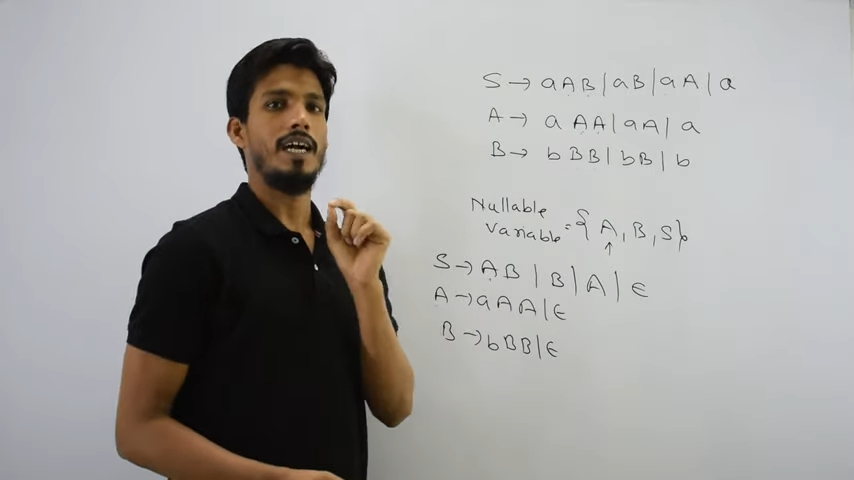 S → aAB | aB | aA | a
A → aAA | aA | a
B → bBB | bB | b
Nullable
Variable = { A, B, S }
↑
S → AB | B | A | ϵ
A → aAA | ϵ
B → bBB | ϵ